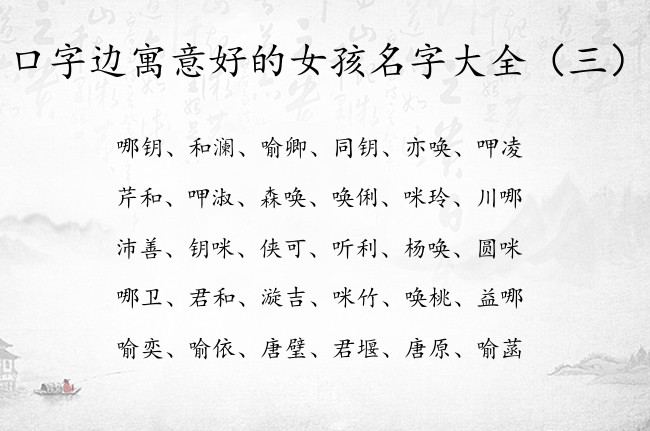 口字边寓意好的女孩名字大全（三）
哪钥、和澜、喻卿、同钥、亦唤、呷凌
芹和、呷淑、森唤、唤俐、咪玲、川哪
沛善、钥咪、侠可、听利、杨唤、圆咪
哪卫、君和、漩吉、咪竹、唤桃、益哪
喻奕、喻依、唐璧、君堰、唐原、喻菡